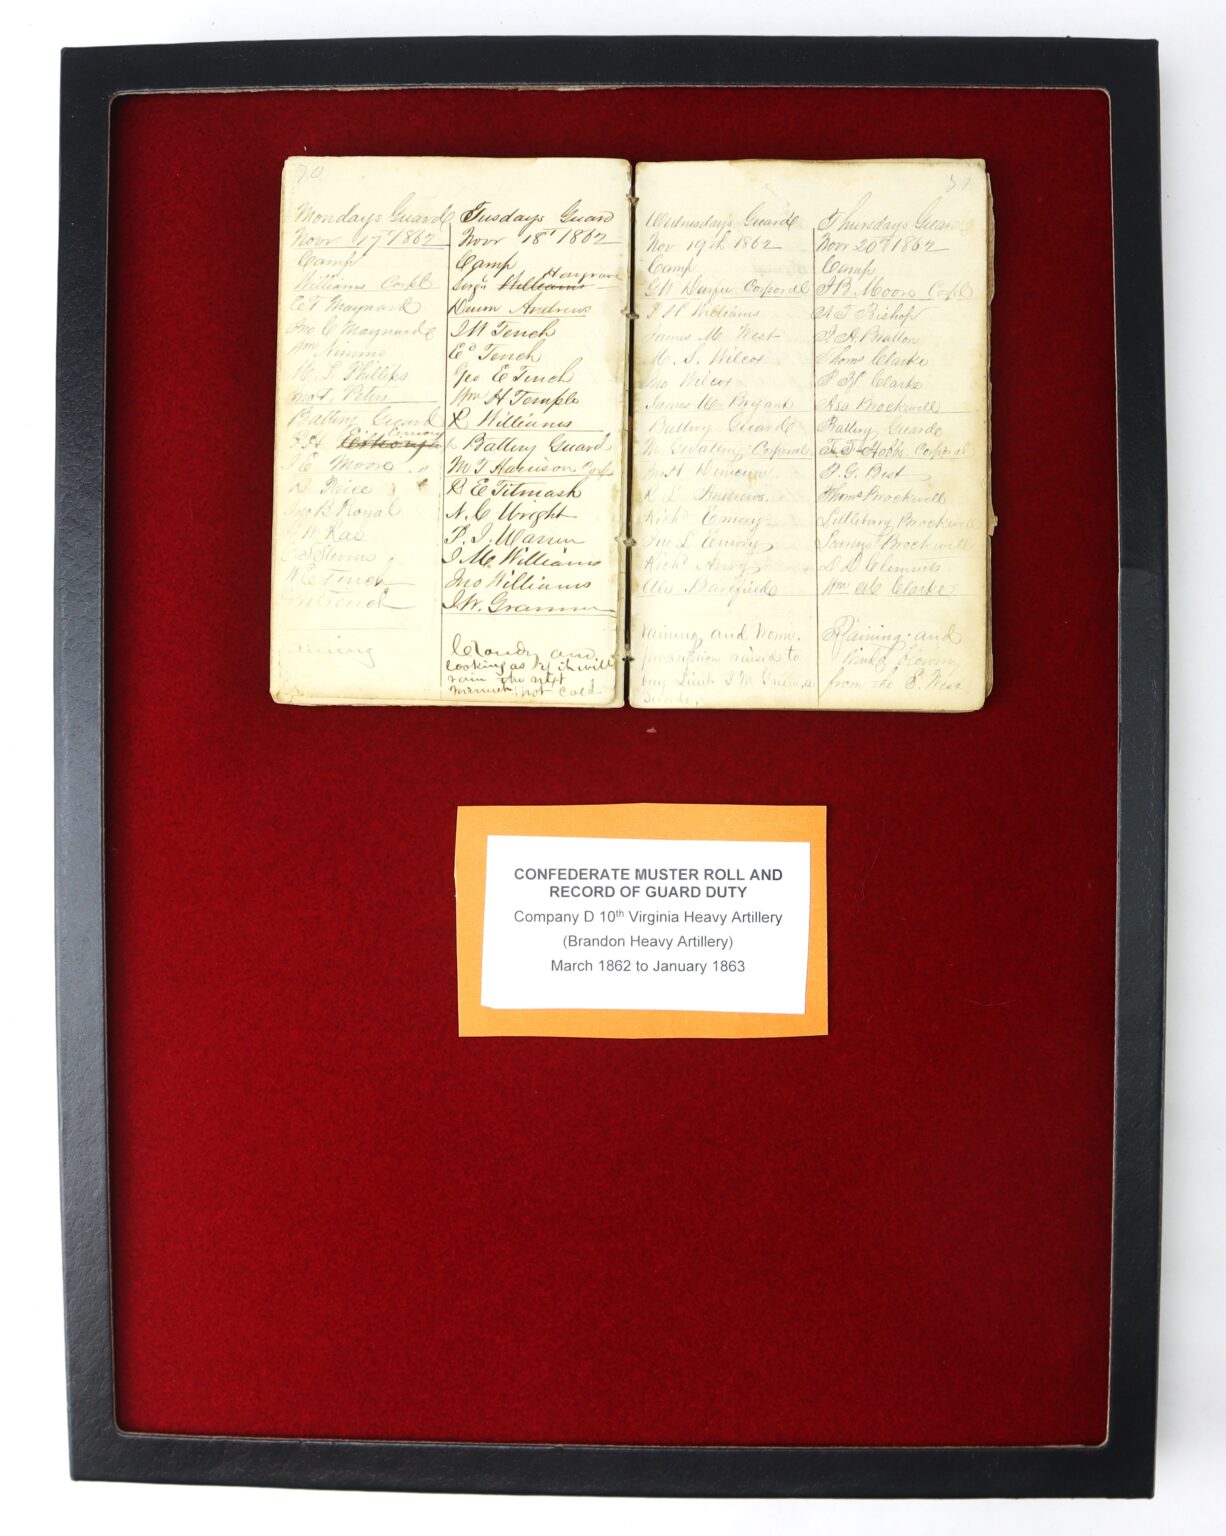 70
Mondays Guard
Novr 17th 1862
Camp
Williams Corpl
E F Maynard
Jno C Maynard
Wm Nimmo
M L Phillips
Peters
Battery Guard
Emory
J E Moore
Price
Jno B Royal
W Rae
Stevens
W E Tench
Tench
raining
Tuesdays Guard
Novr 18th 1862
Camp
Hargrave
Sergt Williams
Dunn Andrews
J W Tench
Ed Tench
Geo E Tench
Wm H Temple
R Williams
Battery Guard
M T Harrison Corp
R E Titmash
N. C Wright
P. J. Warren
J M Williams
Jno Williams
J. W. Grammer
Cloudy and
looking as if it will
rain the next
minute not cold
71
Wednesdays Guard
Nov 19th 1862
Camp
Corporal
P H Williams
James M West
M. S. Wilcox
Jno Wilcox
James M Bryant
Battery Guard
Corporal
R L Andrews
Richd Emory
Jno L Emory
Richd Avery
Alex Barefield
raining and warm.
to
buy Lieut J M a
Thursdays Guard
Novr 20th 1862
Camp
J. B. Moore Corpl
A T Bishop
R. A. Bratton
Thoms Clarke
P H Clarke
Asa Brockwell
Battery Guard
T. T. Hobbs Corporal
P. G. Best
Thoms Brockwell
Littlebury Brockwell
Brockwell
D D Clements
Wm Clarke
Raining and
from the S. West
CONFEDERATE MUSTER ROLL AND
RECORD OF GUARD DUTY
Company D 10th Virginia Heavy Artillery
(Brandon Heavy Artillery)
March 1862 to January 1863